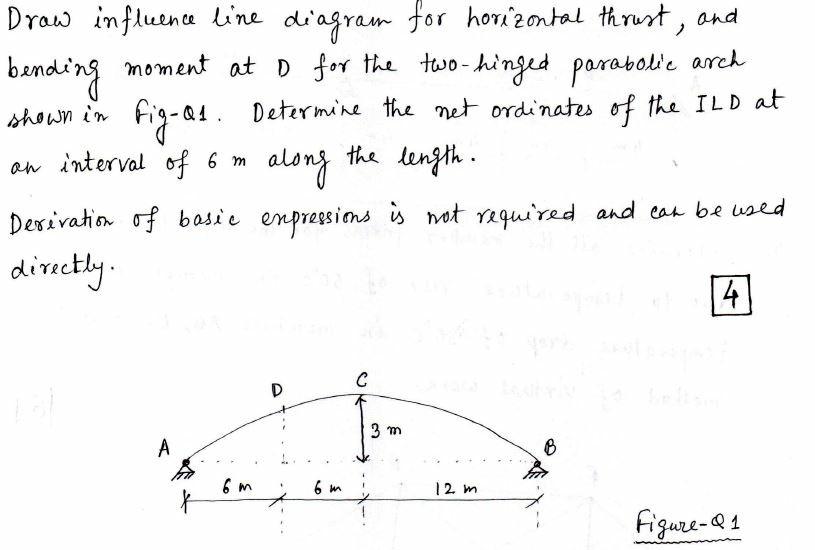 Draw influence line diagram for horizontal thrust, and
bending moment at D for the two-hinged parabolic arch
shown in Fig-Q1. Determine the net ordinates of the ILD at
an interval of 6 m along the length.
Derivation of basic expressions is not required and can be used
directly.
4
C
D
3 m
A
B
6 m
6 m
12 m
Figure-Q1